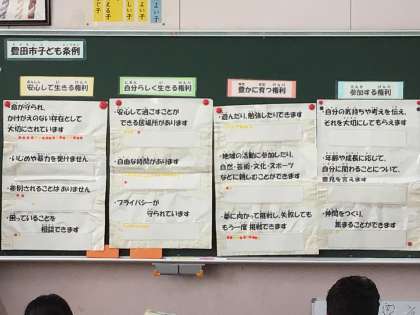 豊田市子ども条例
安心して生きる権利
・命が守られ、
かけがえのない存在として
大切にされています
・いじめや暴力を受けません
・差別されることはありません
・困っていることを
相談できます
自分らしく生きる権利
・安心して過ごすことが
できる居場所があります
・自由な時間があります
・プライバシーが
守られています
豊かに育つ権利
・遊んだり、勉強したりできます
・地域の活動に参加したり、
自然・芸術・文化・スポーツ
などに親しむことができます
・夢に向かって挑戦し、失敗しても
もう一度挑戦できます
参加する権利
・自分の気持ちや考えを伝え、
それを大切にしてもらえます
・年齢や成長に応じて、
自分に関わることについて、
意見を言えます
・仲間をつくり、
集まることができます